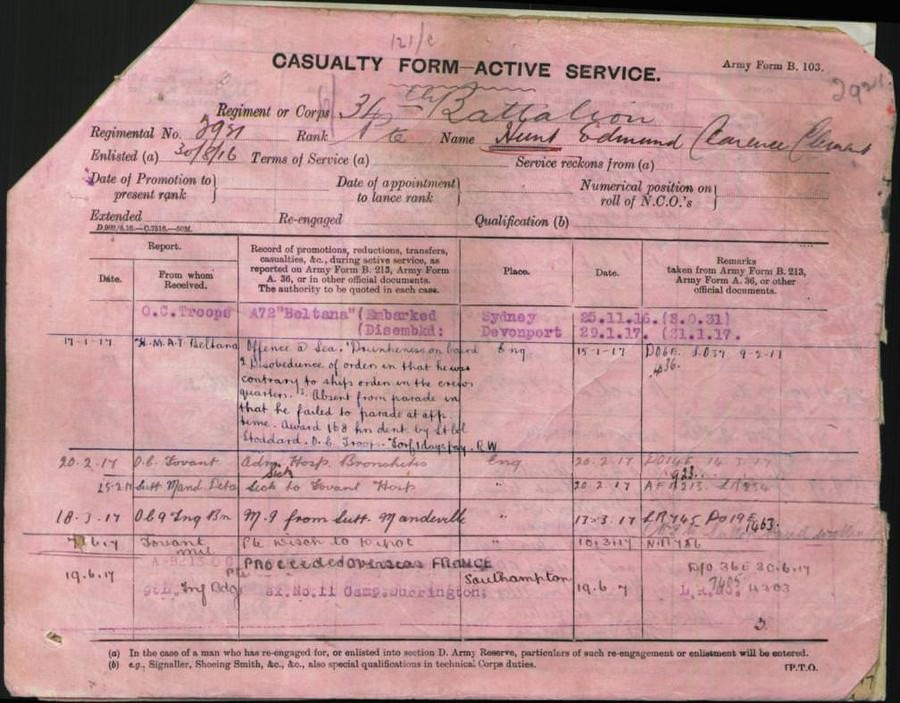 121/c
CASUALTY FORM—ACTIVE SERVICE.
Army Form B. 103.
2921
Regiment or Corps 34th Battalion
Regimental No. 2921 Rank Pte Name Hunt Edmund Clarence Clement
Enlisted (a) 30/8/16 Terms of Service (a) Service reckons from (a)
Date of Promotion to present rank } Date of appointment to lance rank } Numerical position on roll of N.C.O.'s }
Extended Re-engaged Qualification (b)
D.902/6.16.—C.7516.—50M.
Report.
Date. From whom Received.
Record of promotions, reductions, transfers,
casualties, &c., during active service, as
reported on Army Form B. 213, Army Form
A. 36, or in other official documents.
The authority to be quoted in each case.
Place.
Date.
Remarks
taken from Army Form B. 213,
Army Form A. 36, or other
official documents.
O.C. Troops A72 "Beltana" (Embarked Sydney 25.11.16. (S.O.31)
(Disembkd: Devonport 29.1.17. (21.1.17.
17-1-17 H.M.A.T. Beltana Offence @ Sea. "Drunkeness on board Eng 15-1-17
2 Disobedience of order in that he was
contrary to ships order in the crews
quarters. 3. Absent from parade in
that he failed to parade at app
time. Award 168 hrs dent. by Lt Col
Stoddard. O.C. Troops. Forf 7 days pay. R.W
20.2.17 O.C. Fovant Adm Hosp. Bronchitis Eng 20.2.17
25.2.17 Sutt Mand Deta Sick to Fovant Hosp " 20.2.17 AFB213
18.3.17 OC 9 Tng Bn M.I from Sutt. Mandeville " 13.3.17
Fovant " 10.3.17
19.6.17 9th Tng Bdg Pte PROCEEDED OVERSEAS FRANCE Southampton 19.6.17 D/O 36E 30.6.17
No.11 Camp. Durrington:
(a) In the case of a man who has re-engaged for, or enlisted into section D. Army Reserve, particulars of such re-engagement or enlistment will be entered.
(b) e.g., Signaller, Shoeing Smith, &c., &c., also special qualifications in technical Corps duties.
[P.T.O.